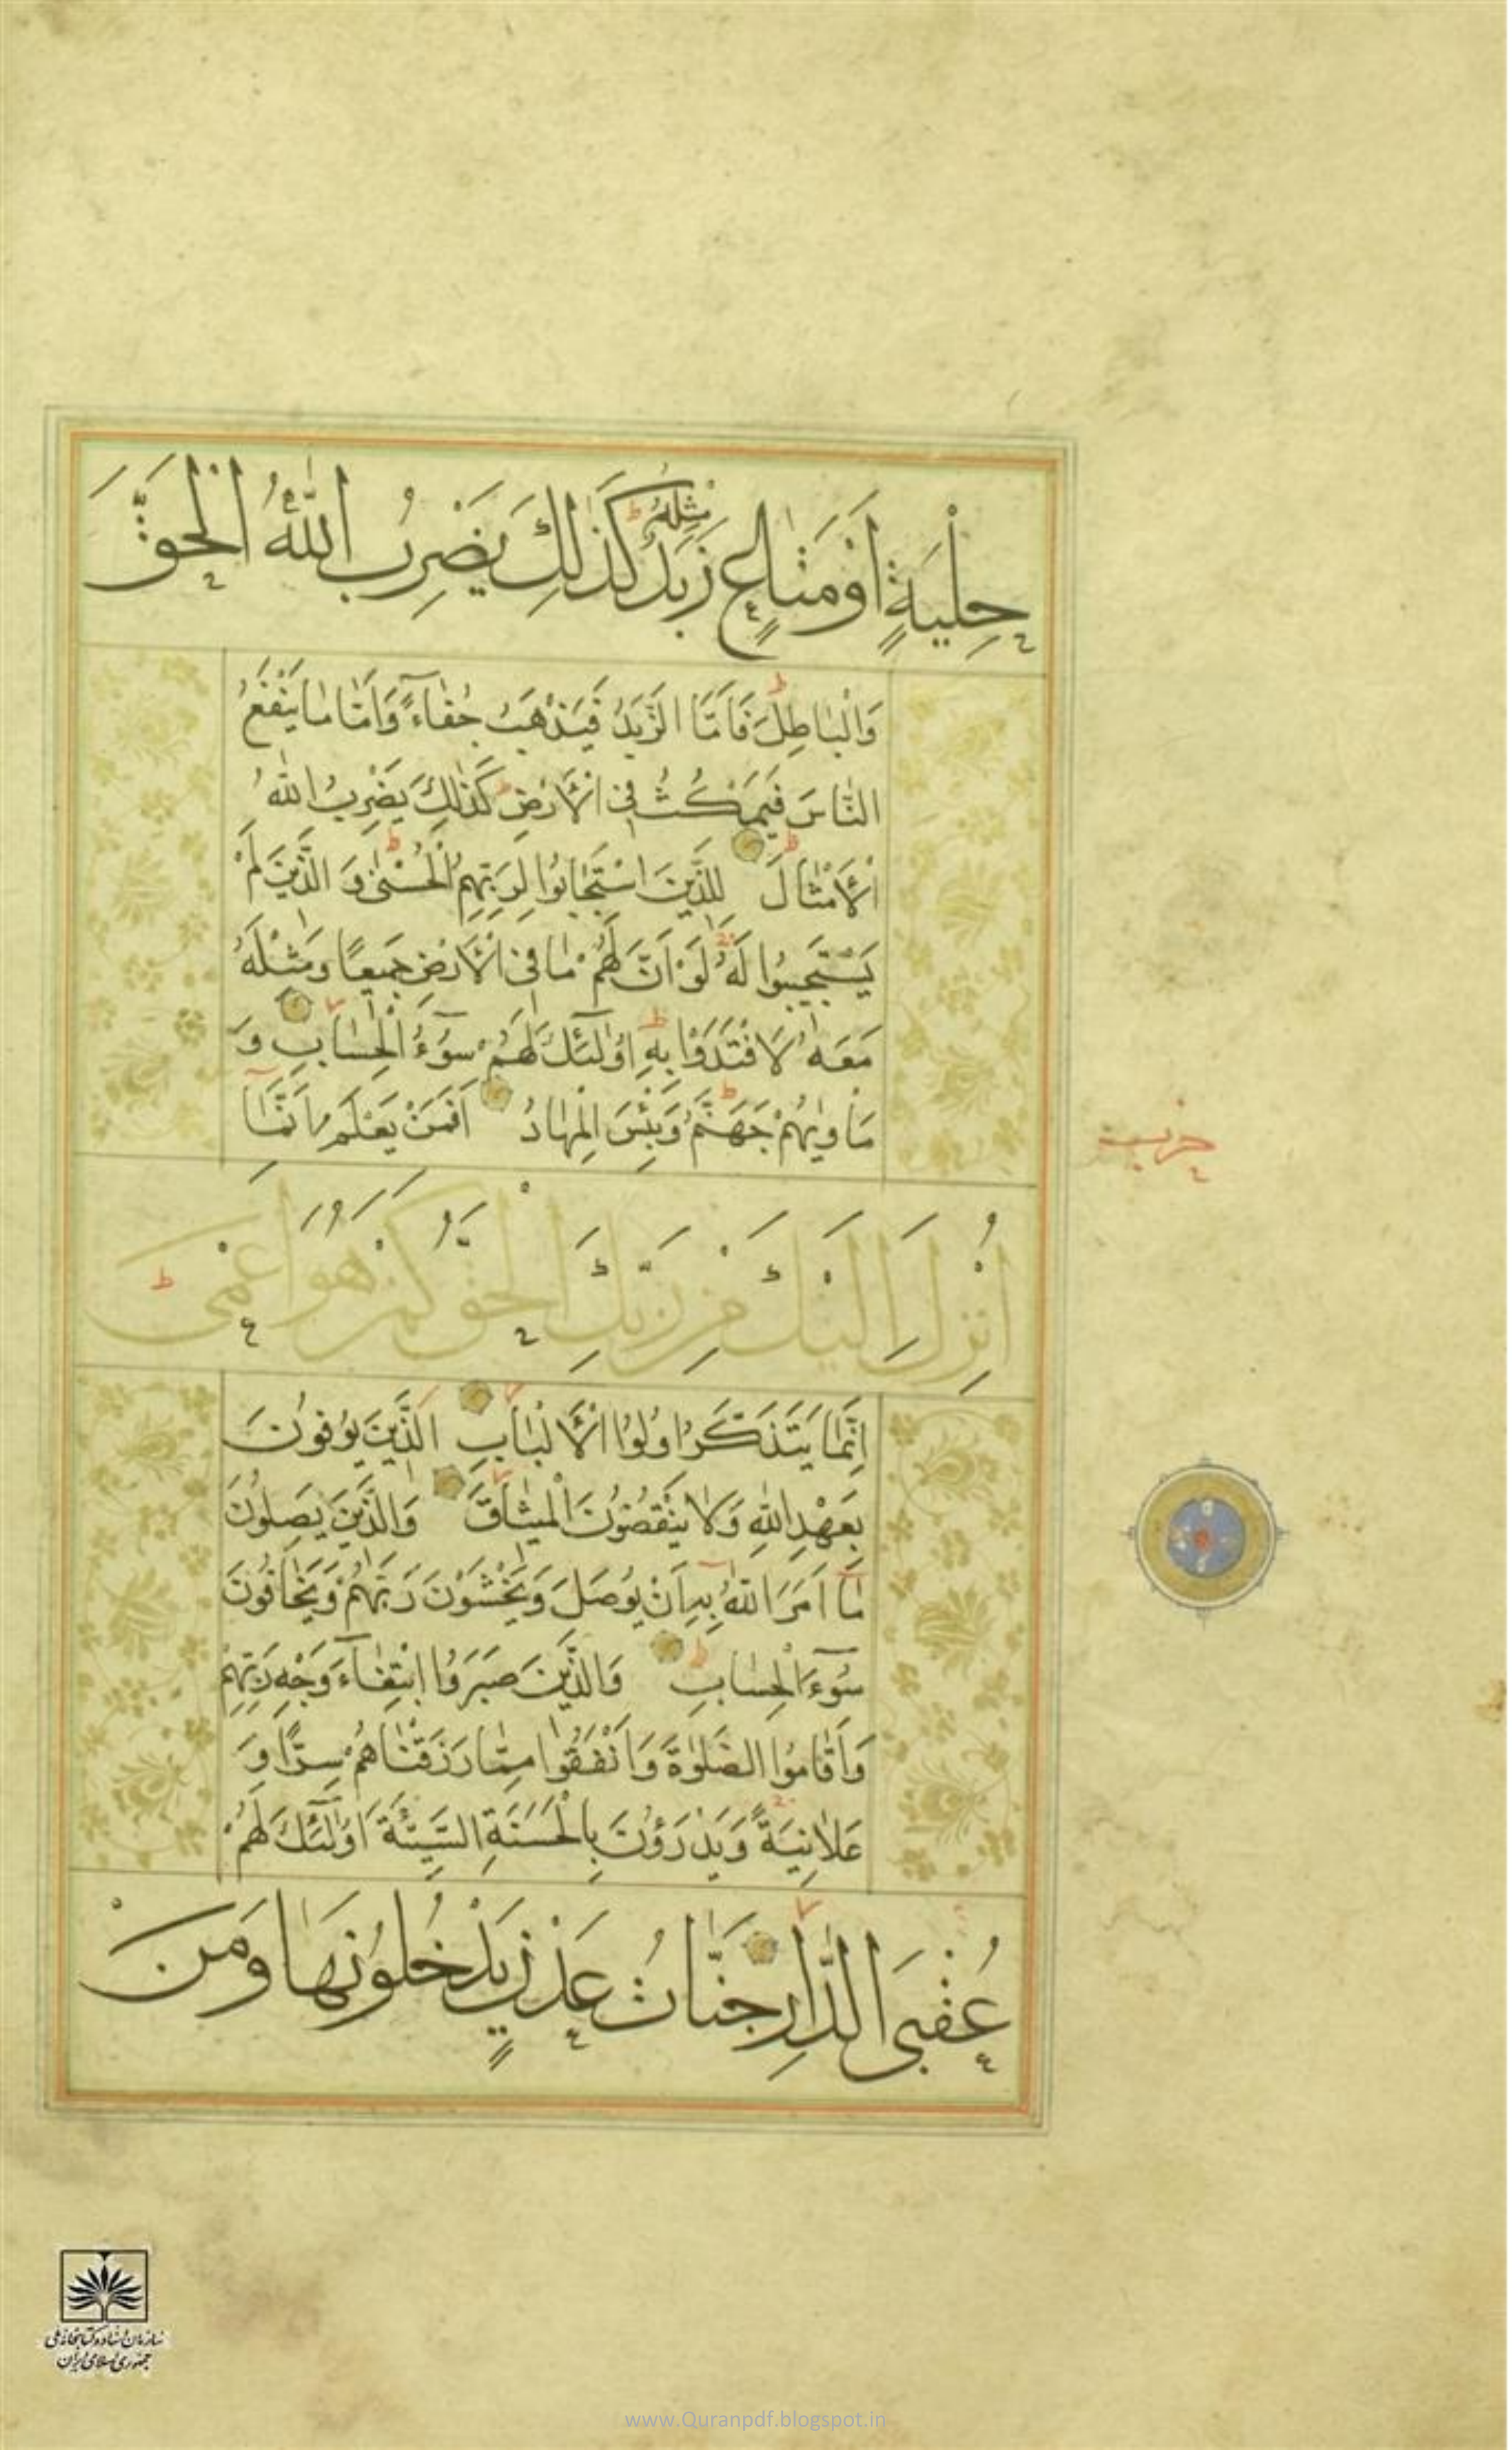 حِلْيَةٍ اَوْ مَتٰاعٍ زَبَدٌ مِثْلُهُ كَذٰلِكَ يَضْرِبُ اللّٰهُ الْحَقَّ
وَالْبٰاطِلَ فَاَمَّا الزَّبَدُ فَيَذْهَبُ جُفٰاءً وَاَمّٰا مٰا يَنْفَعُ
النّٰاسَ فَيَمْكُثُ فِى الْاَرْضِ كَذٰلِكَ يَضْرِبُ اللّٰهُ
الْاَمْثٰالَ لِلَّذِينَ اسْتَجٰابُوا لِرَبِّهِمُ الْحُسْنىٰ وَ الَّذِينَ لَمْ
يَسْتَجِيبُوا لَهُ لَوْ اَنَّ لَهُمْ مٰا فِى الْاَرْضِ جَمِيعًا وَمِثْلَهُ
مَعَهُ لَافْتَدَوْا بِهِ اُولٰٓئِكَ لَهُمْ سُوٓءُ الْحِسٰابِ وَ
مَاْوٰيهُمْ جَهَنَّمُ وَبِئْسَ الْمِهٰادُ اَفَمَنْ يَعْلَمُ اَنَّمٰا
اُنْزِلَ اِلَيْكَ مِنْ رَبِّكَ الْحَقُّ كَمَنْ هُوَ اَعْمىٰ
اِنَّمٰا يَتَذَكَّرُ اُولُوا الْاَلْبٰابِ اَلَّذِينَ يُوفُونَ
بِعَهْدِ اللّٰهِ وَلٰا يَنْقُضُونَ الْمِيثٰاقَ وَالَّذِينَ يَصِلُونَ
مٰا اَمَرَ اللّٰهُ بِهِ اَنْ يُوصَلَ وَيَخْشَوْنَ رَبَّهُمْ وَيَخٰافُونَ
سُوٓءَ الْحِسٰابِ وَالَّذِينَ صَبَرُوا ابْتِغٰٓاءَ وَجْهِ رَبِّهِمْ
وَاَقٰامُوا الصَّلٰوةَ وَاَنْفَقُوا مِمّٰا رَزَقْنٰاهُمْ سِرًّا وَ
عَلٰانِيَةً وَيَدْرَؤُنَ بِالْحَسَنَةِ السَّيِّئَةَ اُولٰٓئِكَ لَهُمْ
عُقْبَى الدّٰارِ جَنّٰاتُ عَدْنٍ يَدْخُلُونَهٰا وَمَنْ
حزب
سازمان اسناد و کتابخانه ملی
جمهوری اسلامی ایران
www.Quranpdf.blogspot.in